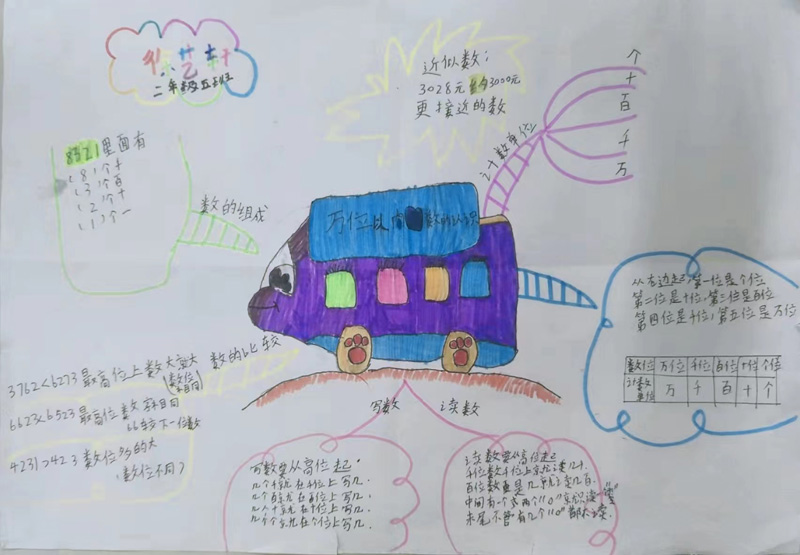 艺轩
二年级五班
8321里面有
(8)个千
(3)个百
(2)个十
(1)个一
数的组成
近似数:
3028元≈约3000元
更接近的数
计数单位
个
十
百
千
万
万位以内数的认识
从右边起,第一位是个位
第二位是十位,第三位是百位
第四位是千位,第五位是万位
数位 万位 千位 百位 十位 个位
计数单位 万 千 百 十 个
数的比较
3762<6273 最高位上数大就大
(数位相同)
6623<6523 最高位数相同
比较下一位数
4231>423 数位多的大
(数位不同)
写数
写数要从高位起.
几个千就在千位上写几.
几个百就在百位上写几.
几个十就在十位上写几.
几个个就在个位上写几.
读数
读数要从高位起
千位数千位上是几读几千.
百位数是几就读几百.
中间有一个或两个"0"就只读"零"
末尾不管有几个"0"都不读.